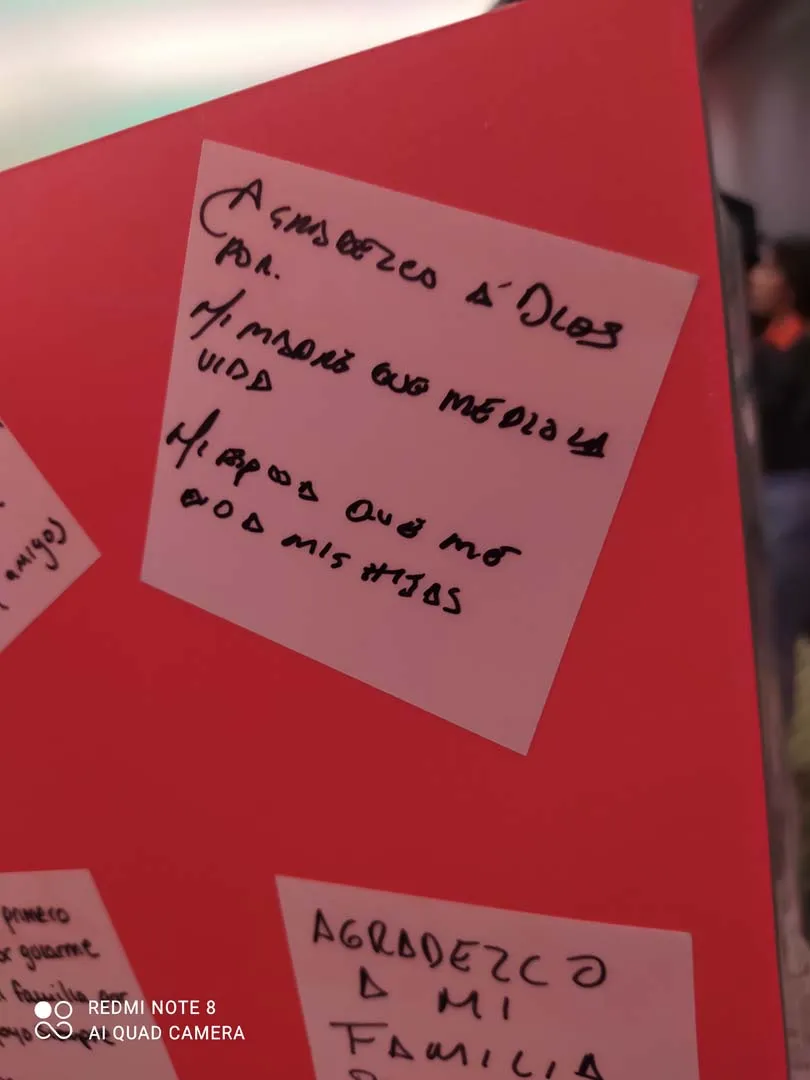 AGRADEZCO A DIOS
POR.
MI MADRE QUE ME DIO LA
VIDA
MI ESPOSA QUE ME
DIO A MIS HIJAS
amigos
primero
guiarme
familia por
AGRADEZCO
A MI
FAMILIA
REDMI NOTE 8
AI QUAD CAMERA